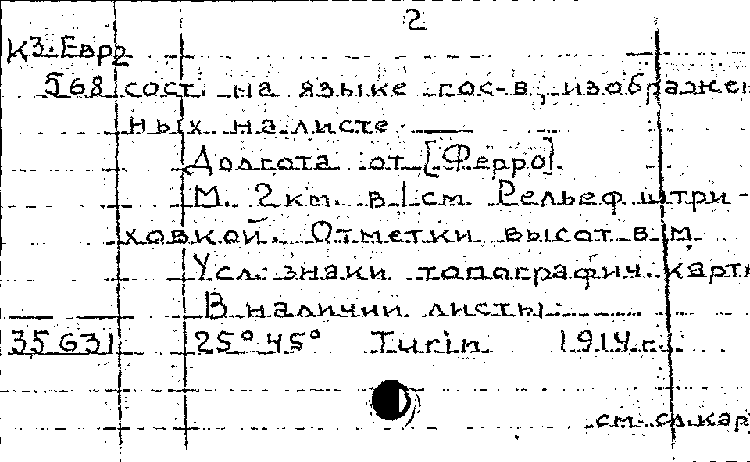 2
К3. Евр2
568 сост. на языке гос-в, изображен
ных на листе
Долгота от [Ферро].
М. 2 км. в 1 см. Рельеф штри-
ховкой. Отметки высот в м.
Усл. знаки топографич. карт
В наличии листы:
35631 25° 45° Turin 1914 г.
см. сл. кар